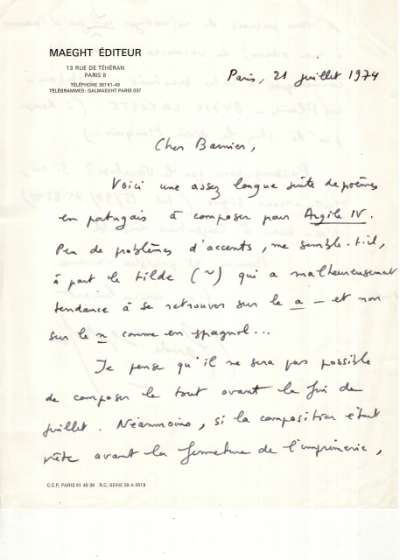 MAEGHT ÉDITEUR
13 RUE DE TÉHÉRAN
PARIS 8
TÉLÉPHONE 387-61-49
TÉLÉGRAMMES: GALMAEGHT PARIS 037
Paris, 21 juillet 1974
Cher Barnier,
Voici une assez longue suite de poèmes
en portugais à composer pour Argile IV.
Peu de problèmes d'accents, me semble-t-il,
à part le tilde (~) qui a malheureusement
tendance à se retrouver sur le a — et non
sur le n comme en espagnol...
Je pense qu'il ne sera pas possible
de composer le tout avant la fin de
juillet. Néanmoins, si la composition était
prête avant la fermeture de l'imprimerie,
C.C.P. PARIS
R.C. SEINE